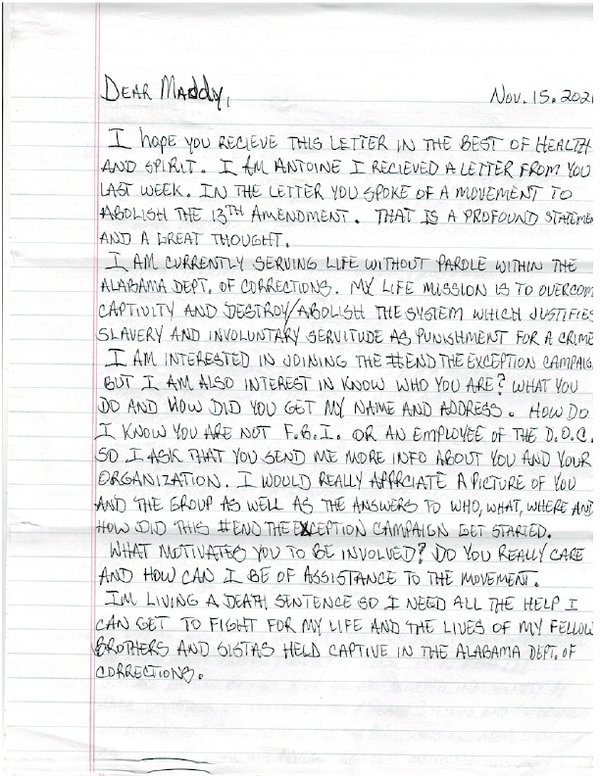 Dear Maddy,
Nov. 15. 202
I hope you recieve this letter in the best of health
and spirit. I am Antoine I recieved a letter from you
last week. In the letter you spoke of a movement to
abolish the 13th Amendment. That is a profound stateme
and a great thought.
I am currently serving life without parole within the
Alabama Dept. of Corrections. My life mission is to overcom
captivity and destroy/abolish the system which justifies
slavery and involuntary servitude as punishment for a crime
I am interested in joining the #EndTheException campaig
But I am also interest in know who you are? What you
do and how did you get my name and address. How do
I know you are not F.B.I. or an employee of the D.O.C.
So I ask that you send me more info about you and your
organization. I would really apprciate a picture of you
and the group as well as the answers to who, what, where an
how did this #EndTheException campaign get started.
What motivates you to be involved? Do you really care
and how can I be of assistance to the movement.
Im living a death sentence so I need all the help I
can get to fight for my life and the lives of my fellow
brothers and sistas held captive in the Alabama Dept. of
Corrections.